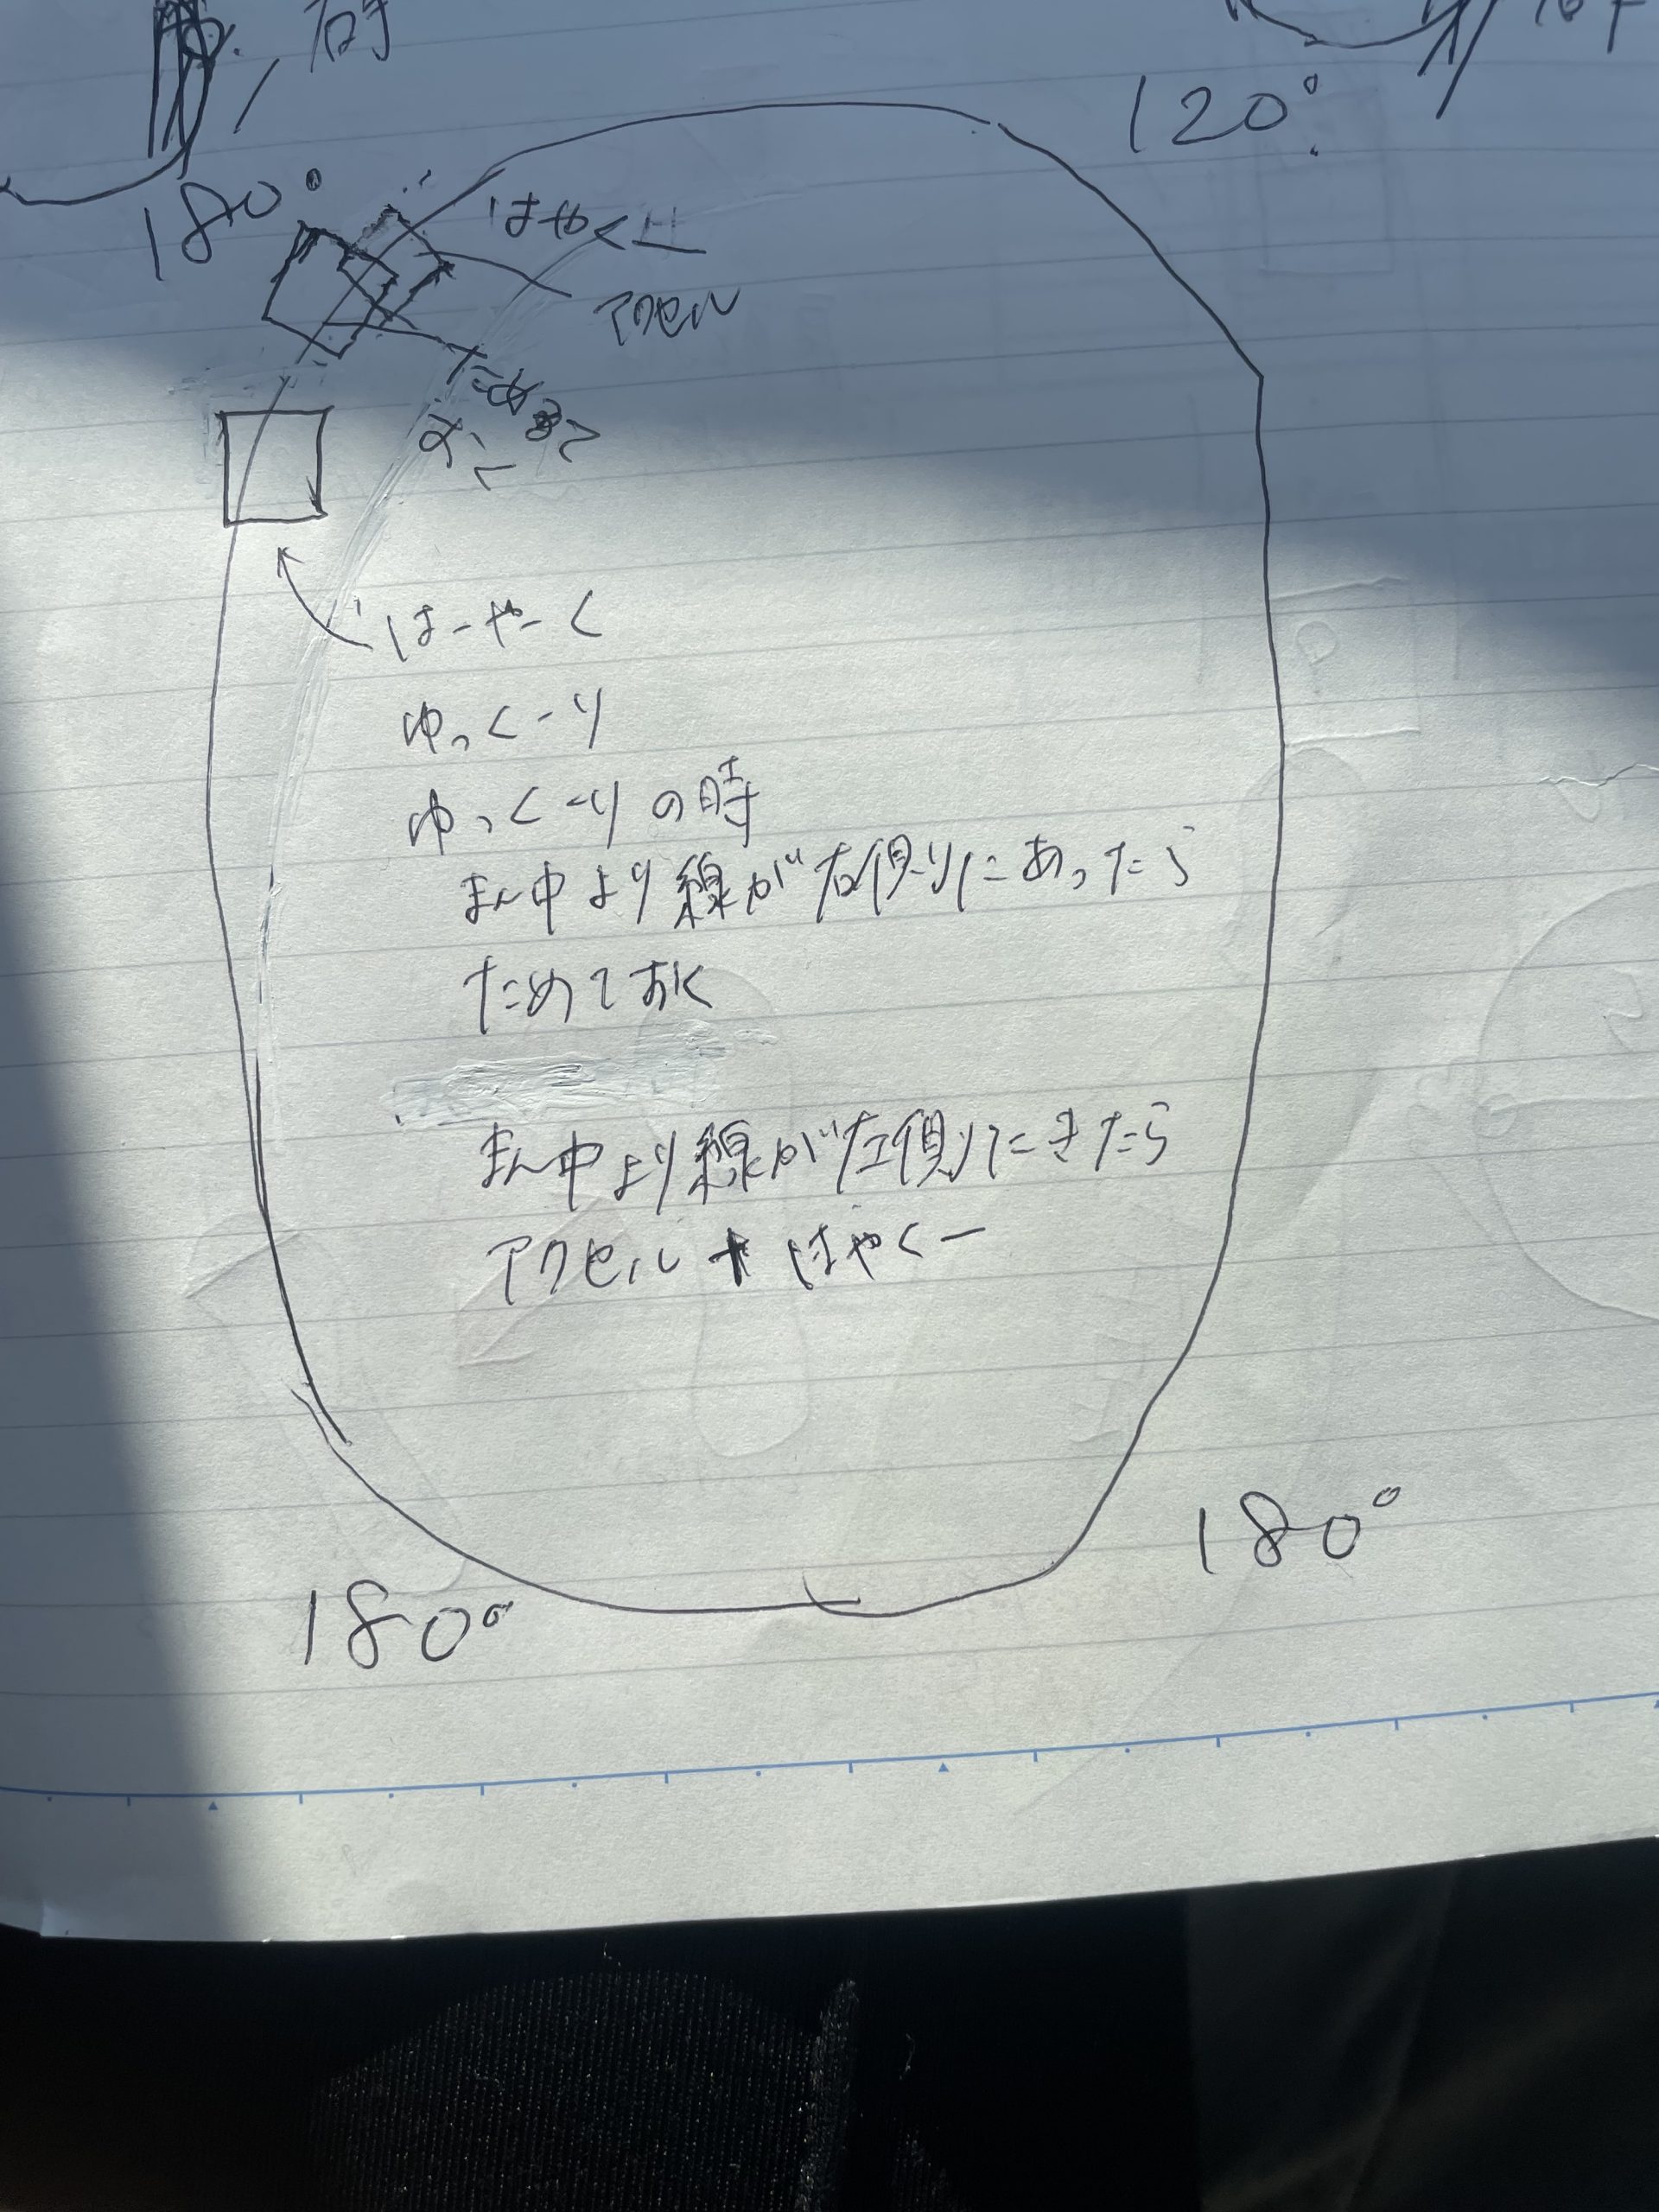 120°
180°
はやくー
アクセル
ためて
おく
はーやーく
ゆっくーり
ゆっくーりの時
まん中より線が右側りにあったら
ためておく
まん中より線が左側りにきたら
アクセル + はやくー
180°
180°